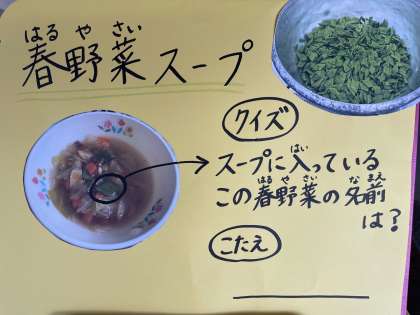 はる や さい
春野菜スープ
クイズ
はい
スープに入っている
はる や さい な まえ
この春野菜の名前
は?
こたえ